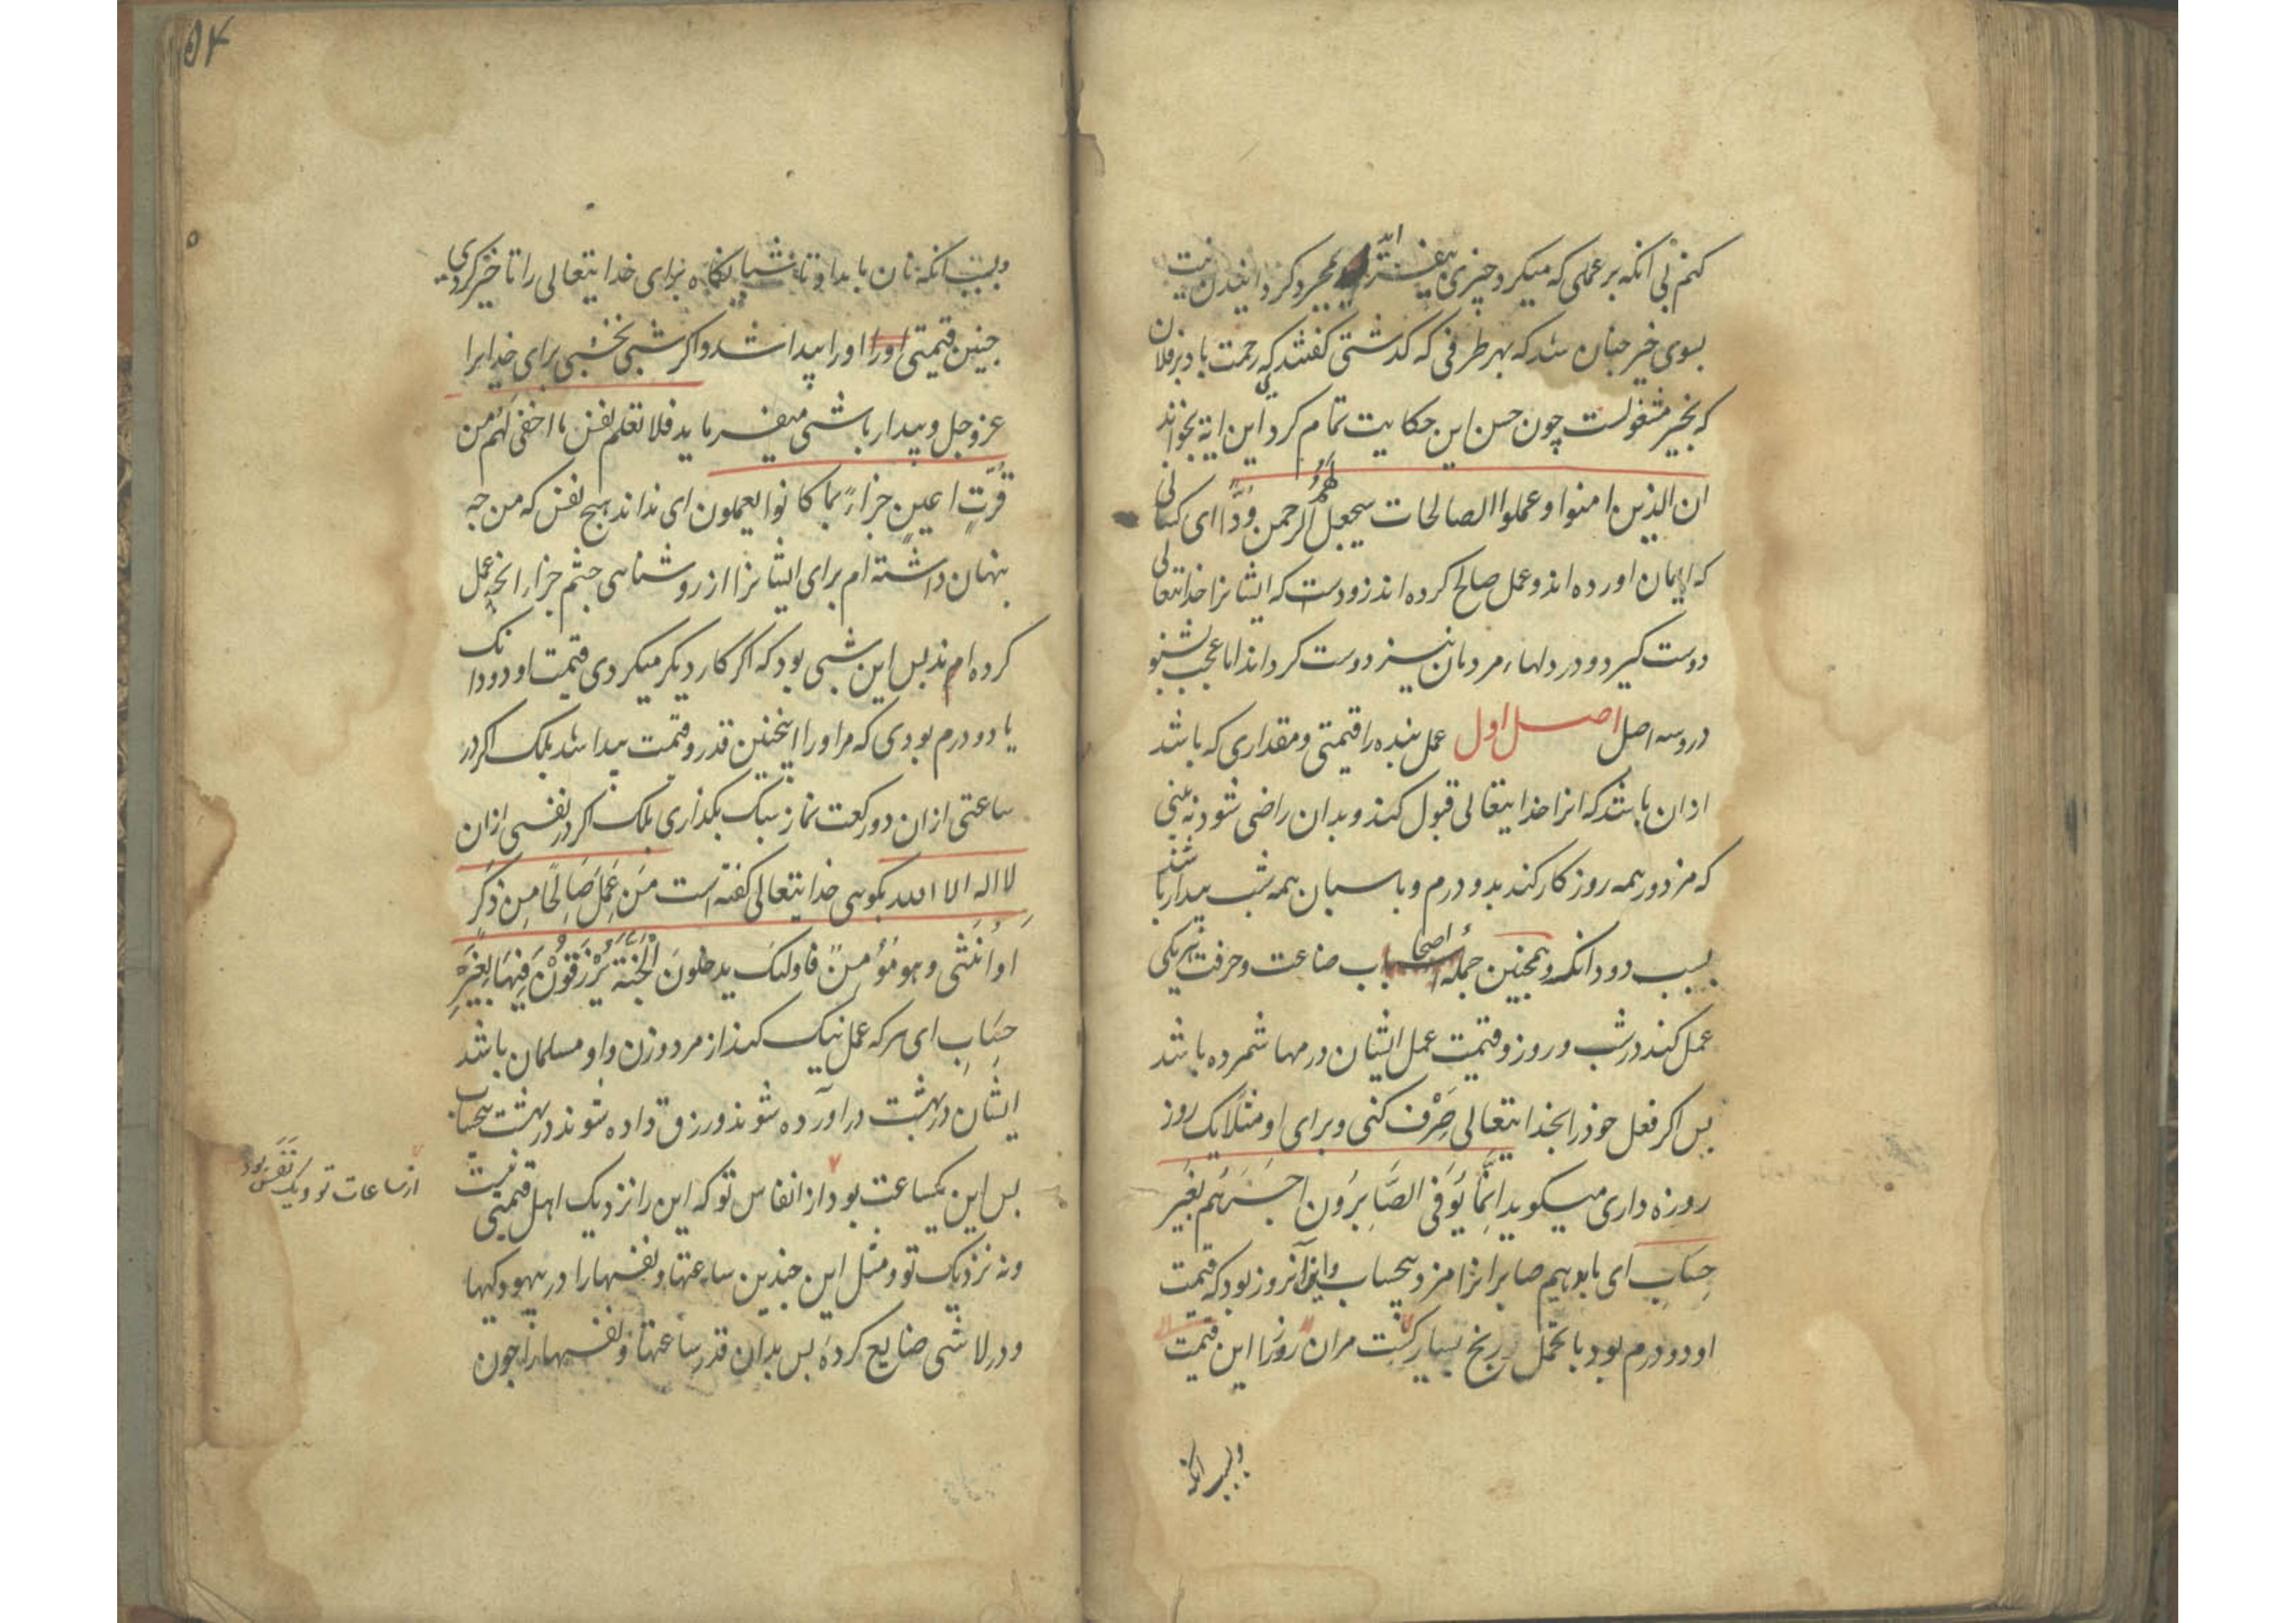 کنم بی انکه بر عملی که میکرد چیزی بیفزاید بمجرد کردانیدن نیت
بسوی خیر چنان شد که بهر طرفی که کدشتی کفتندی که رحمت باد بر فلان
که بخیر مشغولست چون حسن این حکایت تمام کرد این ایة بخواند
ان الذین امنوا وعملوا الصالحات سیجعل لهم الرحمن ودّا ای کسانی
که ایمان اورده اند و عمل صالح کرده اند زودست که ایشانرا خدایتعالی
دوست کیرد و در دلهاء مردمان نیز دوست کرداند اما عجب بشنو
در وسه اصل اصل اول عمل بنده را قیمتی و مقداری که باشد
ازان باشد که انرا خدایتعالی قبول کند و بدان راضی شود نه بینی
که مزدور همه روز کار کند بدو درم و پاسبان همه شب بیدار باشد
بسبب دو دانکه و همچنین جملهٔ اصحاب صناعت و حرفت هر یکی
عمل کند در شب و روز و قیمت عمل ایشان درمها شمرده باشد
پس اکر فعل خوذ را بخدایتعالی صَرْف کنی و برای او مثلا یک روز
روزه داری میکوید اِنَّمَا یُوَفَّی الصَّابِرُون اجرهُم بغَیر
حِسَابِ ای ما بدهیم صابرانرا مزد بیحساب و این آنروز بود که قیمت
او دو درم بود با تحمل رنج بسیار کشت مران روز را این قیمت
و بسبب انکه
۱۵۴
و بسبب انکه نان بامداد تا شبانکاه برای خدایتعالی را تاخیر کردی
چنین قیمتی اورا اورا پیدا شد و اکر شبی نخسبی برای خدایرا
عز وجل و بیدار باشی میفرماید فلا تعلم نفس ما اخفی لَهُم من
قُرَّتِ اعینٍ جزاءً بما کانوا یعملون ای نداند هیچ نفس که من چه
پنهان داشته ام برای ایشانرا از روشنایی چشم جزاء انچه عمل
کرده اند پس این شبی بود که اکر کار دیکر میکردی قیمت او دو دانک
یا دو درم بودی که مر اورا اینچنین قدر و قیمت پیدا شد بلک اکر در
ساعتی ازان دو رکعت نماز سبک بکذاری بلک اکر در نفسی ازان
لا اله الا الله بکویی خدایتعالی کفته است مَن عَمِلَ صَالِحًا مِن ذَکَرٍ
اَو اُنثی وهو مُؤمنٌ فاولئک یدخلونَ الجَنَّةَ یُرْزَقُونَ فِیهَا بِغَیرِ
حِسَابِ ای هر که عمل نیک کند از مرد و زن و او مسلمان باشد
ایشان در بهشت در آورده شوند و رزق داده شوند در بهشت بیحساب
پس این یکساعت بود از انفاس تو که این را نزدیک اهل قیمتی نیست
از ساعات تو و یک نَفَس بود
و نه نزدیک تو و مثل این چندین ساعتها و نفسها را در بیهودکیها
و در لا شی ضایع کردهٔ پس بدان قدر ساعتها و نفسها را چون